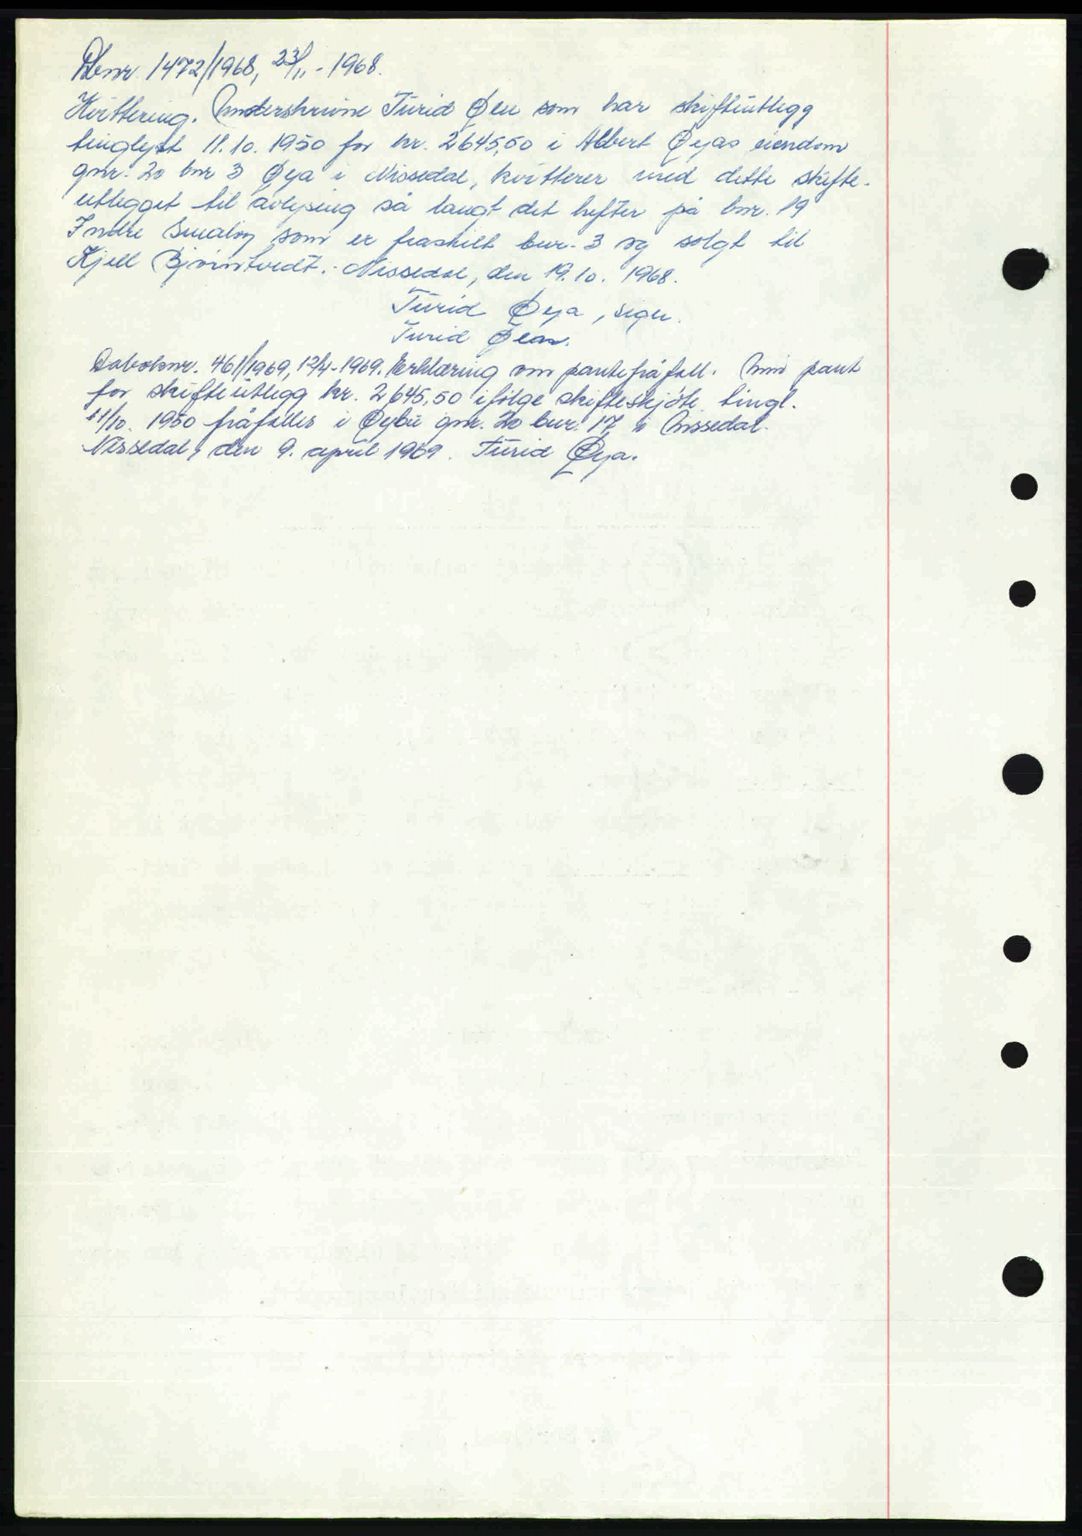 Dbnr. 1472/1968, 23/11-1968.
Kvittering. Underskrivne Turid Øen som har skifteutlegg
tinglyst 11.10. 1950 for kr. 2645,50 i Albert Øyas eiendom
gnr. 20 bnr 3 Øya i Nissedal, kvitterer med dette skifte-
utlegget til avlysing så langt det hefter på bnr. 19
Indre som er fraskilt bnr. 3 og solgt til
Kjell Bjørntvedt. Nissedal, den 19.10. 1968.
Turid Øya, sign.
Turid Øen.
Daboknr. 461/1969, 12/4-1969. Erklæring om pantefråfall. Min pant
for skifteutlegg kr. 2645,50 ifölge skifteskjöte tingl.
11/10. 1950 fråfalles i Øybu gnr. 20 bnr. 17 i Nissedal.
Nissedal, den 9. april 1969. Turid Øya.